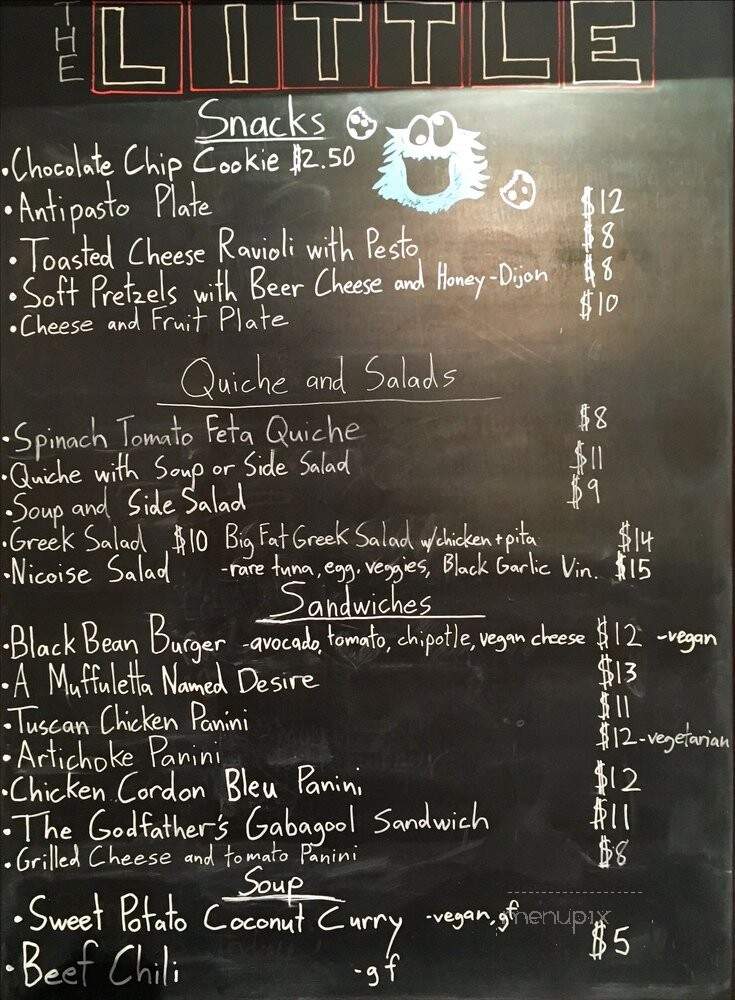 THE LITTLE
Snacks
•Chocolate Chip Cookie $2.50
•Antipasto Plate $12
•Toasted Cheese Ravioli with Pesto $8
•Soft Pretzels with Beer Cheese and Honey-Dijon $8
•Cheese and Fruit Plate $10
Quiche and Salads
•Spinach Tomato Feta Quiche $8
•Quiche with Soup or Side Salad $11
•Soup and Side Salad $9
•Greek Salad $10 Big Fat Greek Salad w/chicken+pita $14
•Nicoise Salad -rare tuna, egg, veggies, Black Garlic Vin. $15
Sandwiches
•Black Bean Burger -avocado, tomato, chipotle, vegan cheese $12 -vegan
•A Muffuletta Named Desire $13
•Tuscan Chicken Panini $11
•Artichoke Panini $12-vegetarian
•Chicken Cordon Bleu Panini $12
•The Godfather's Gabagool Sandwich $11
•Grilled Cheese and tomato Panini $8
Soup
•Sweet Potato Coconut Curry -vegan, gf
$5
•Beef Chili -gf
menupix